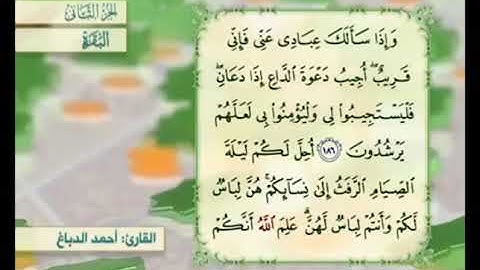 الجزء الثاني
البقرة
وَإِذَا سَأَلَكَ عِبَادِي عَنِّي فَإِنِّي
قَرِيبٌ ۖ أُجِيبُ دَعْوَةَ الدَّاعِ إِذَا دَعَانِ ۖ
فَلْيَسْتَجِيبُوا لِي وَلْيُؤْمِنُوا بِي لَعَلَّهُمْ
يَرْشُدُونَ ١٨٦ أُحِلَّ لَكُمْ لَيْلَةَ
الصِّيَامِ الرَّفَثُ إِلَىٰ نِسَائِكُمْ ۚ هُنَّ لِبَاسٌ
لَكُمْ وَأَنْتُمْ لِبَاسٌ لَهُنَّ ۗ عَلِمَ اللَّهُ أَنَّكُمْ
القارئ: أحمد الدباغ